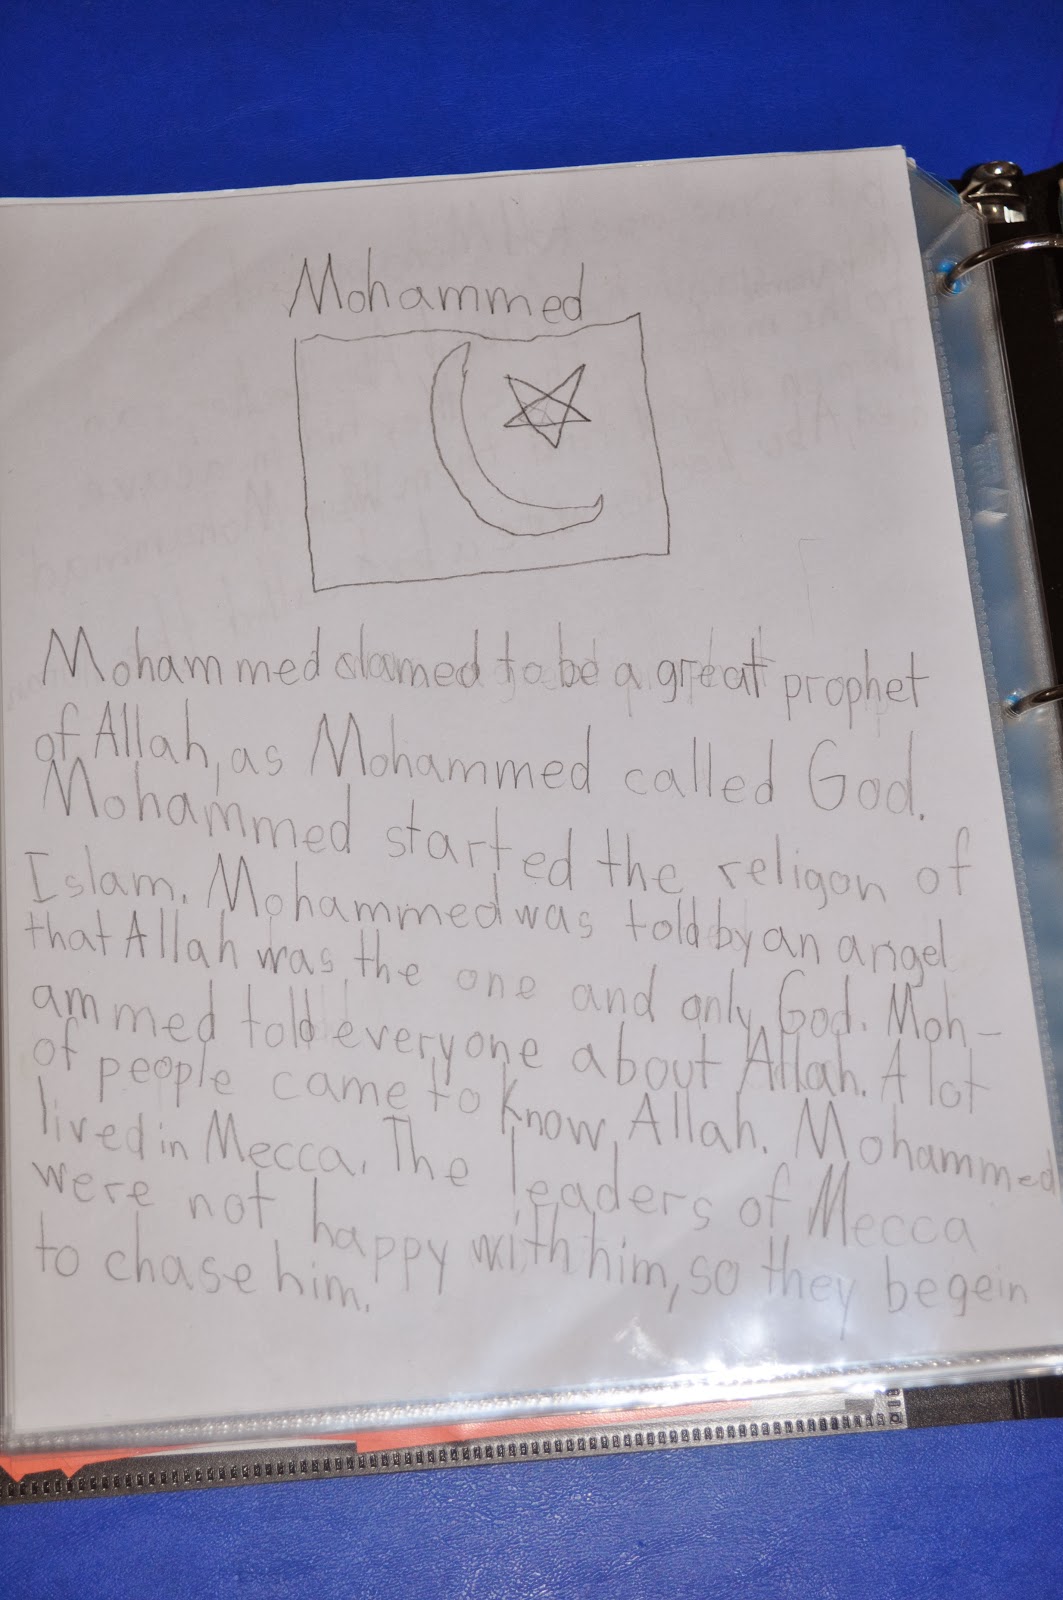 Mohammed
Mohammed clamed to be a great prophet
of Allah, as Mohammed called God.
Mohammed started the religon of
Islam. Mohammed was told by an angel
that Allah was the one and only God. Moh-
ammed told everyone about Allah. A lot
of people came to know Allah. Mohammed
lived in Mecca. The leaders of Mecca
were not happy with him, so they begein
to chase him.